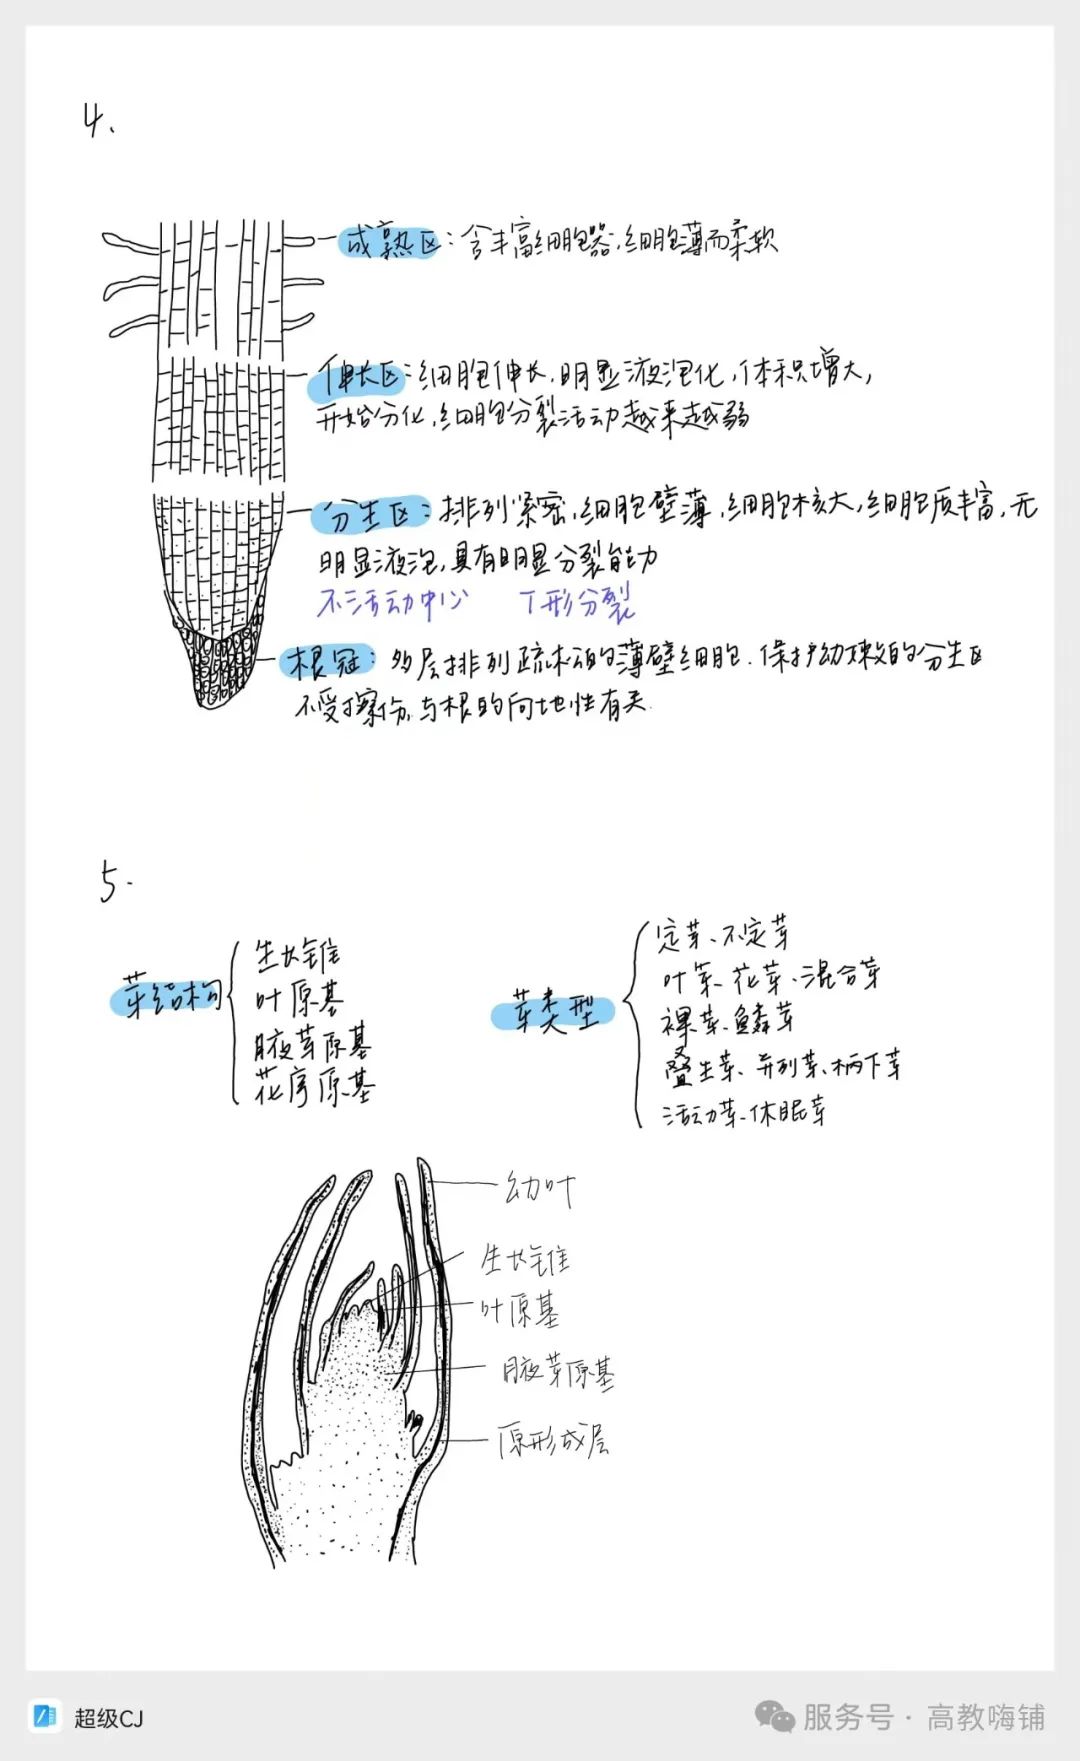 4.
成熟区：含丰富细胞器，细胞薄而柔软
伸长区：细胞伸长，明显液泡化，体积增大，
开始分化，细胞分裂活动越来越弱
分生区：排列紧密，细胞壁薄，细胞核大，细胞质丰富，无
明显液泡，具有明显分裂能力
不活动中心 T形分裂
根冠：多层排列疏松的薄壁细胞．保护幼嫩的分生区
不受擦伤，与根的向地性有关．
5.
芽结构
生长锥
叶原基
腋芽原基
花序原基
芽类型
定芽、不定芽
叶芽、花芽、混合芽
裸芽、鳞芽
叠生芽、并列芽、柄下芽
活动芽、休眠芽
幼叶
生长锥
叶原基
腋芽原基
原形成层
超级CJ
服务号·高教嗨铺